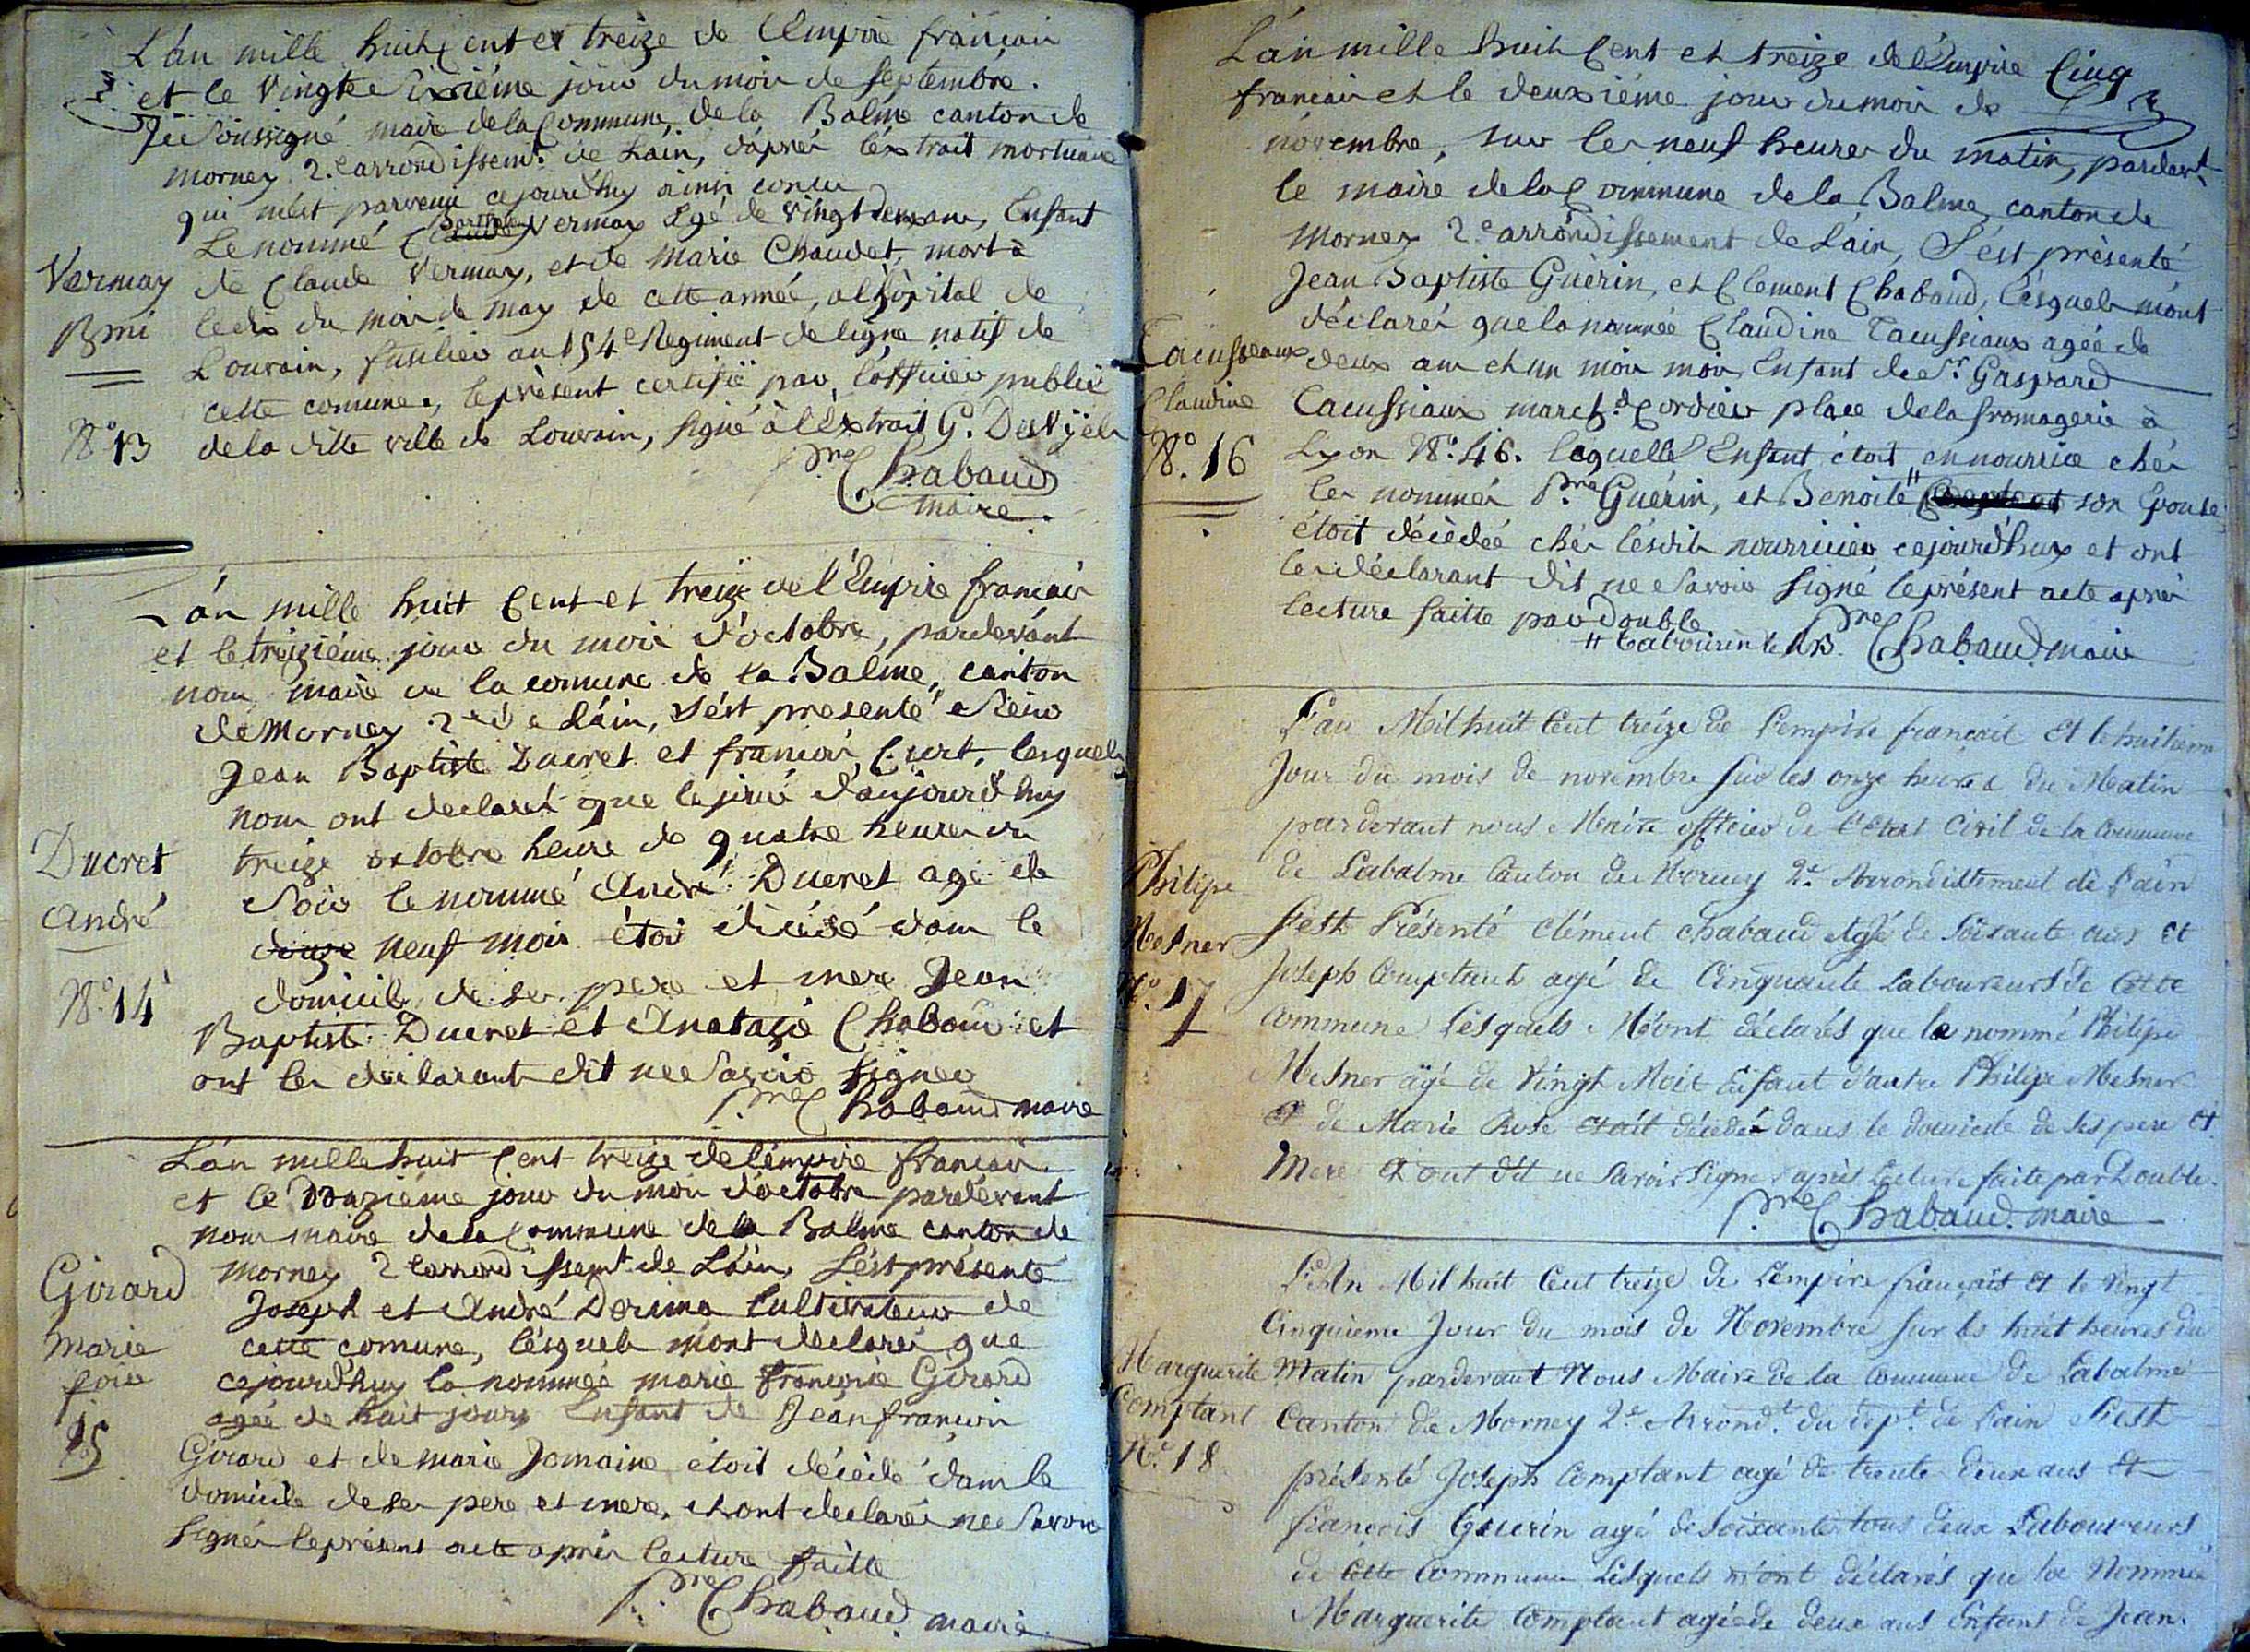 L'an mille huit Cent et treize de l'Empire françair
et le Vingt Sixiéme jour du moir de Septembre.
Je Soussigné maire de la Commune de la Balme canton de
mornay 2.e arrondissemt. de Lain, d'aprér l'extrait mortuaire
qui m'est parvenu cejourd'huy ainsi concu
Le nommé Vermay agé de Vingt deux anr, Enfant
de Claude Vermay, et de Marie Chaudet, mort à
le dix du moir de may de cette année, a l'hôpital de
Louvain, fusilier au 154e Regiment de ligne natif de
cette comune, le présent certifié par l'officier public
de la ditte ville de Louvain, signé à l'Extrait G.
Pre Chabaud
maire.
Vermay
Bmi
No. 13
L'an mille huit Cent et treize de l'Empire françair
et le treiziéme jour du moir d'octobre, pardevant
nour maire de la comune de la Balme, canton
de Mornay 2e de Lain, s'ést presenté Sieur
Jean Baptiste Ducret et françoir Curt, lesquelr
nour ont declaré que le jour d'aujourd'huy
treize octobre heure de quatre heurer du
Soir le nommé André Ducret agé de
douze neuf moir étoi décédé danr le
domicile de ser pere et mere Jean
Baptiste Ducret et Anatazie Chaboud et
ont ler déclarant dit ne Savoir signer
Pre Chabaud maire
Ducret
André
No. 14
L'an mille huit Cent treize de l'émpire françair
et le Douziéme jour du moir d'octobre pardevant
nour maire de la Commune de la Balme canton de
mornay 2e arrondissemt de Lain, S'ést présenté
Joseph et André Dorima Cultivateur de
cette comune, lésquelr m'ont declarér que
cejourd'huy la nommée marie françoise Girard
agée de huit jourr Enfant de Jean françoir
Girard et de marie Jomaine étoit décédé danr le
domicile de ser pere et mere, et ont declarér ne Savoir
signér le présent acte aprér lecture faitte
Pre Chabaud maire
Girard
marie
foise
15
L'an mille huit Cent et treize de l'Empire Cinq
françair et le deuxiéme jour du moir de
novembre, sur ler neuf heurer du matin, pardevt
le maire de la Commune de la Balme, canton de
Mornay 2e arrondissement de Lain, S'ést présenté
Jean Baptiste Guérin, et Clement Chabaud, lésquelr m'ont
déclarér que la nommée Claudine Tacussiaux agée de
deux anr et un moir moir Enfant de Sr. Gaspard
Tacussiaux march.d Cordier place de la fromagerie à
Lyon No. 46. laquelle Enfant étoit en nourrice chér
ler nommér Pre Guérin, et Benoite " son Epouse
étoit décédée chér lésdit nourricier cejourd'huy et ont
ler déclarant dit ne Savoir Signé le présent acte aprér
lecture faitte par double
" Tabourin Pre Chabaud maire
Tacusseaux
Claudine
No. 16
L'an Mil huit Cent treize de l'empire français et le huitieme
Jour du mois de novembre sur les onze heures du Matin
pardevant nous Maire officier de l'état Civil de la Commune
de Labalme Canton de Mornay 2e. Arrondissement de l'ain
s'est Présenté Clément Chabaud agé de soixante ans et
Joseph Comptant agé de Cinquante Laboureurs de Cette
Commune lesquels M'ont déclarés que le nommé Philipe
Mesner agé de Vingt Mois Enfant d'autre Philipe Mesner
et de Marie Rose était décédé dans le domicile de ses pere et
Mere et ont dit ne Savoir signer après Lecture faite par Double.
Pre Chabaud. maire
Philipe
Mesner
No. 17
L'An Mil huit Cent treize de l'Empire français et le vingt
Cinquieme Jour du mois de Novembre sur les huit heures du
Matin pardevant Nous Maire de la Commune de Labalme
Canton de Mornay 2e Arrondt. du dept. de l'ain s'est
présenté Joseph Comptant agé de trente deux ans et
françois Guerin agé de soixante tous deux Laboureurs
de Cette Commune Lesquels m'ont déclarés que la Nommée
Marguerite Comptant agée de deux ans Enfant de Jean.
Marguerite
Comptant
No. 18